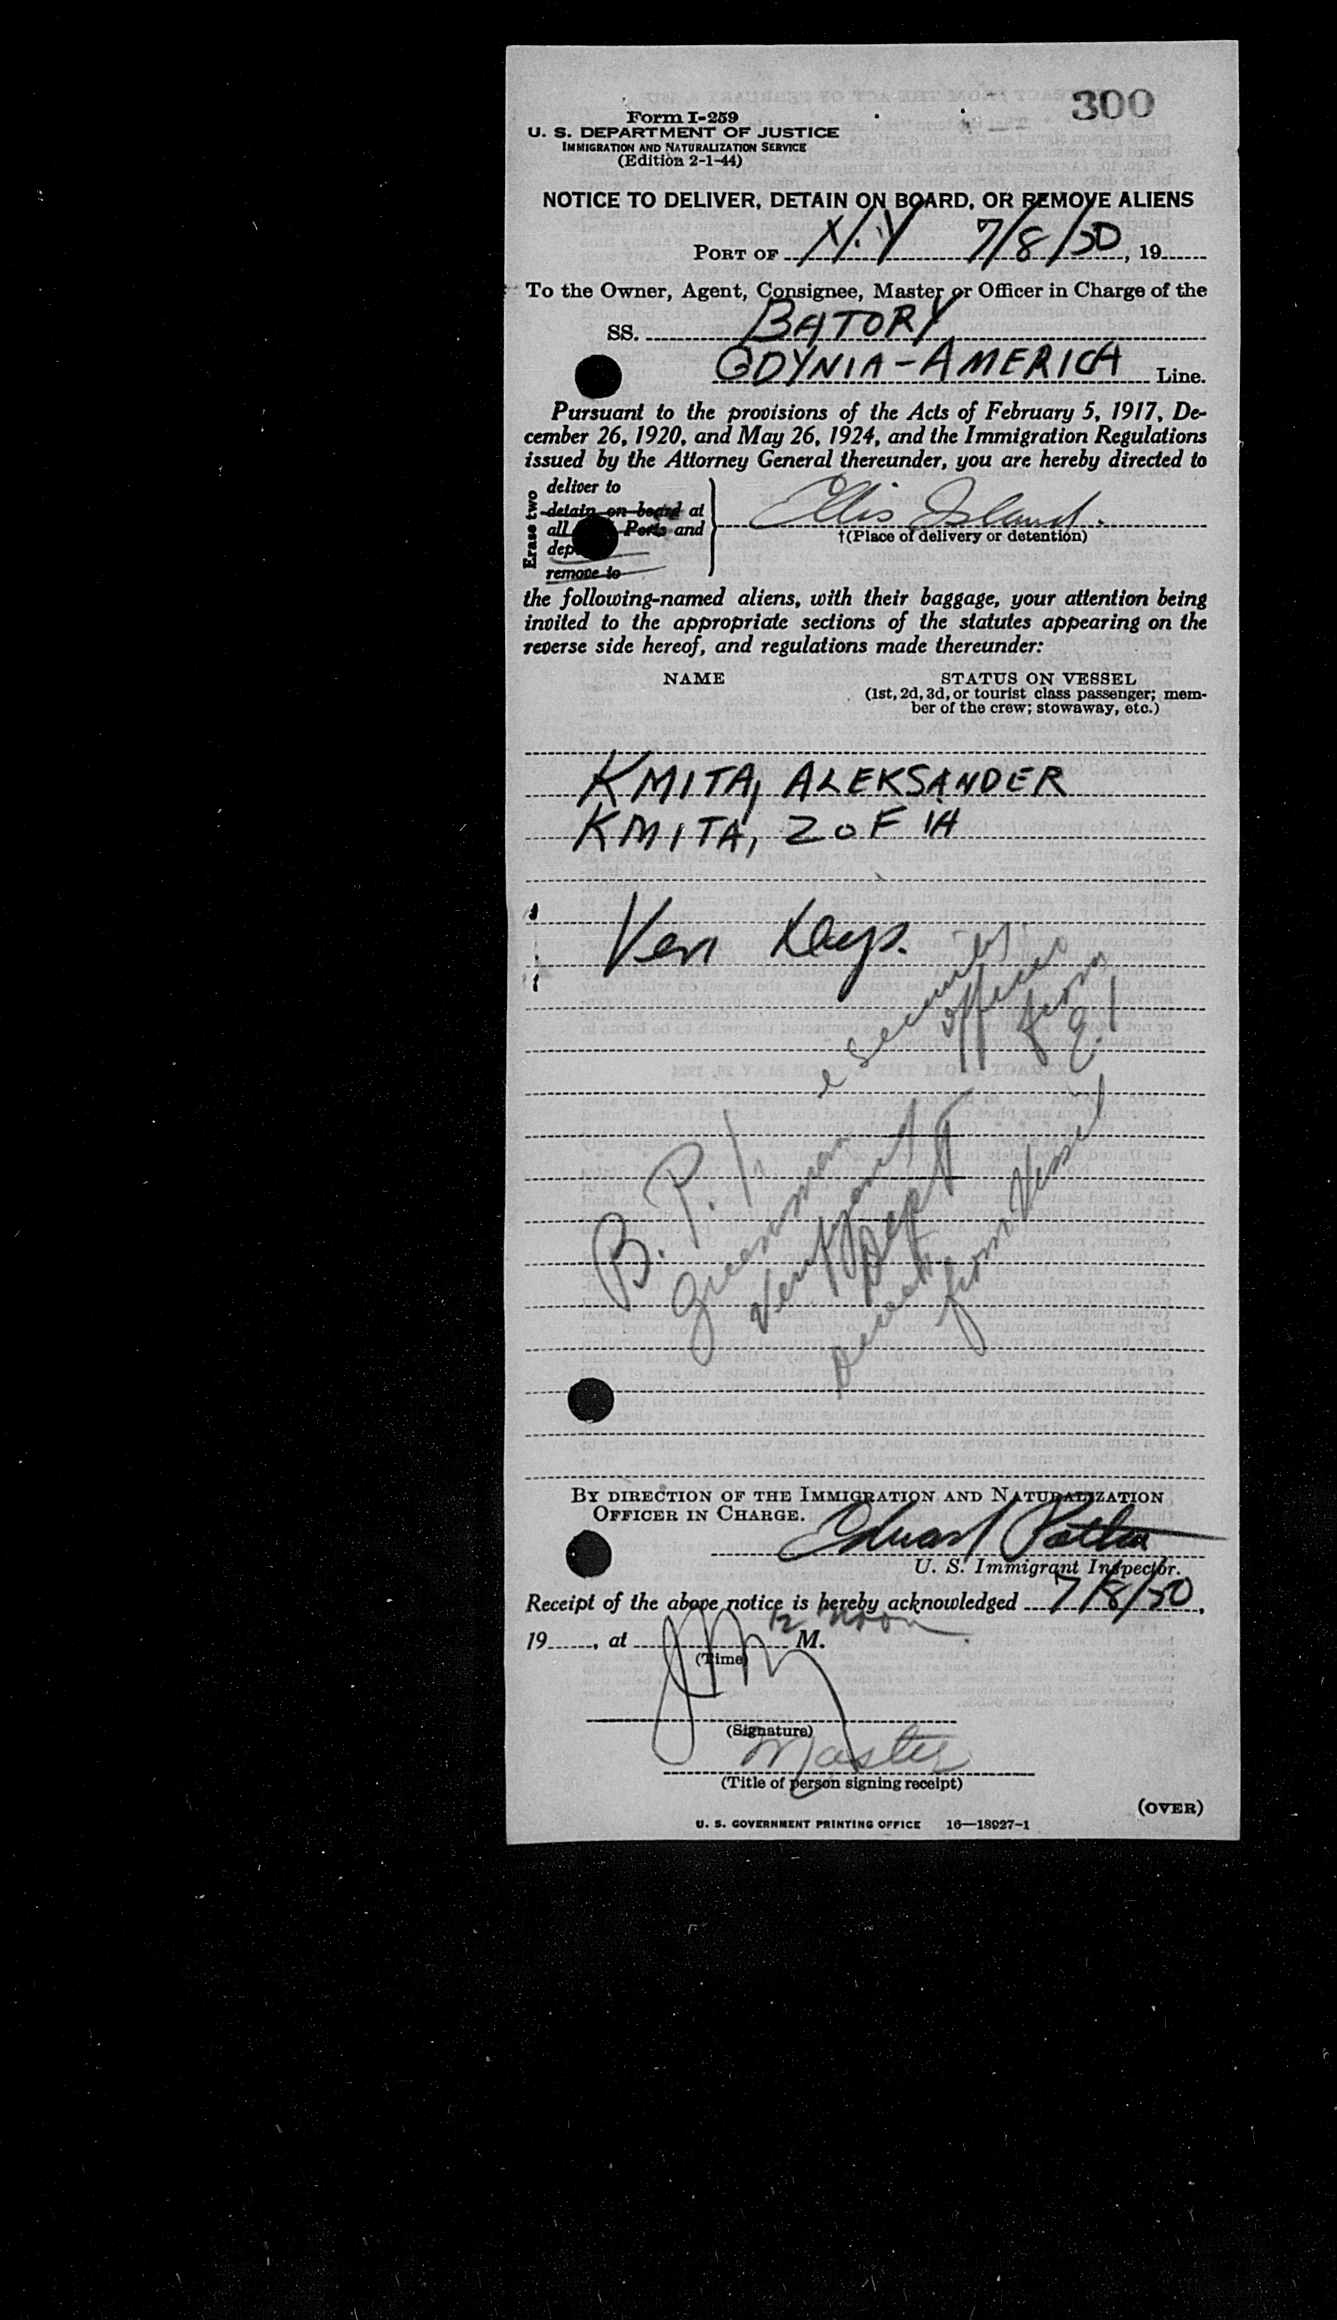 300
Form I-259
U. S. DEPARTMENT OF JUSTICE
IMMIGRATION AND NATURALIZATION SERVICE
(Edition 2-1-44)
NOTICE TO DELIVER, DETAIN ON BOARD, OR REMOVE ALIENS
PORT OF N.Y 7/8/50, 19
To the Owner, Agent, Consignee, Master or Officer in Charge of the
SS. BATORY
GDYNIA-AMERICA Line.
Pursuant to the provisions of the Acts of February 5, 1917, De-
cember 26, 1920, and May 26, 1924, and the Immigration Regulations
issued by the Attorney General thereunder, you are hereby directed to
Erase two
deliver to
detain on board at
all Ports and
dep
remove to
Ellis Island.
†(Place of delivery or detention)
the following-named aliens, with their baggage, your attention being
invited to the appropriate sections of the statutes appearing on the
reverse side hereof, and regulations made thereunder:
NAME
STATUS ON VESSEL
(1st, 2d, 3d, or tourist class passenger; mem-
ber of the crew; stowaway, etc.)
KMITA, ALEKSANDER
KMITA, ZOFIA
Ven Keys.
e security
officer
from
E.I
B. P.
Greenman
Dept
from Vessel
BY DIRECTION OF THE IMMIGRATION AND NATURALIZATION
OFFICER IN CHARGE.
Edward
U. S. Immigrant Inspector.
Receipt of the above notice is hereby acknowledged 7/8/50,
19, at 12 Noon M.
(Time)
(Signature)
Master
(Title of person signing receipt)
(OVER)
U. S. GOVERNMENT PRINTING OFFICE 16—18927-1